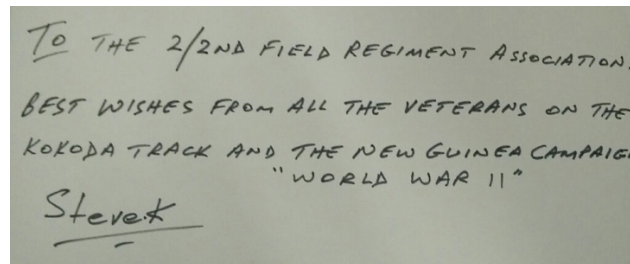 To THE 2/2ND FIELD REGIMENT ASSOCIATION.
BEST WISHES FROM ALL THE VETERANS ON THE
KOKODA TRACK AND THE NEW GUINEA CAMPAIG
"WORLD WAR II"
SteveK